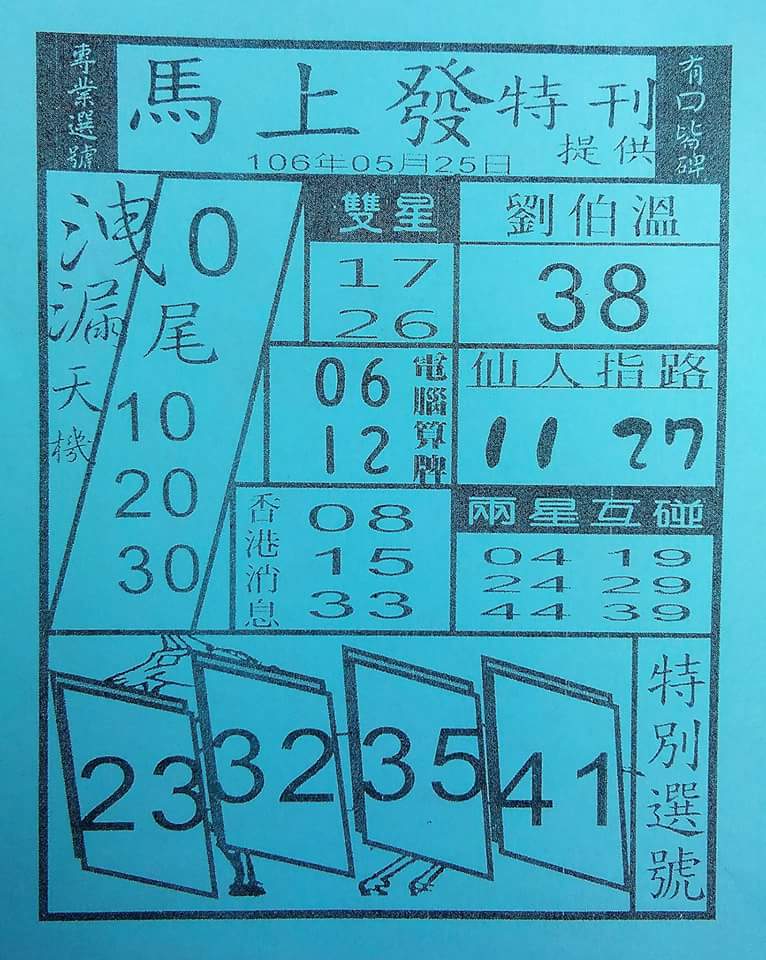 專業選號
馬上發特刊
提供
106年05月25日
有口皆碑
洩漏天機
0
尾
10
20
30
雙星
17
26
劉伯溫
38
06
12
電腦算牌
仙人指路
11 27
香港消息
08
15
33
兩星互碰
04 19
24 29
44 39
23 32 35 41
特別選號